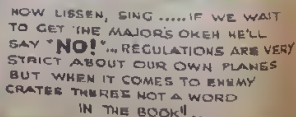 NOW LISSEN, SING ..... IF WE WAIT
TO GET THE MAJOR'S OKEH HE'LL
SAY "NO!"... REGULATIONS ARE VERY
STRICT ABOUT OUR OWN PLANES
BUT WHEN IT COMES TO ENEMY
CRATES THERE'S NOT A WORD
IN THE BOOK!!